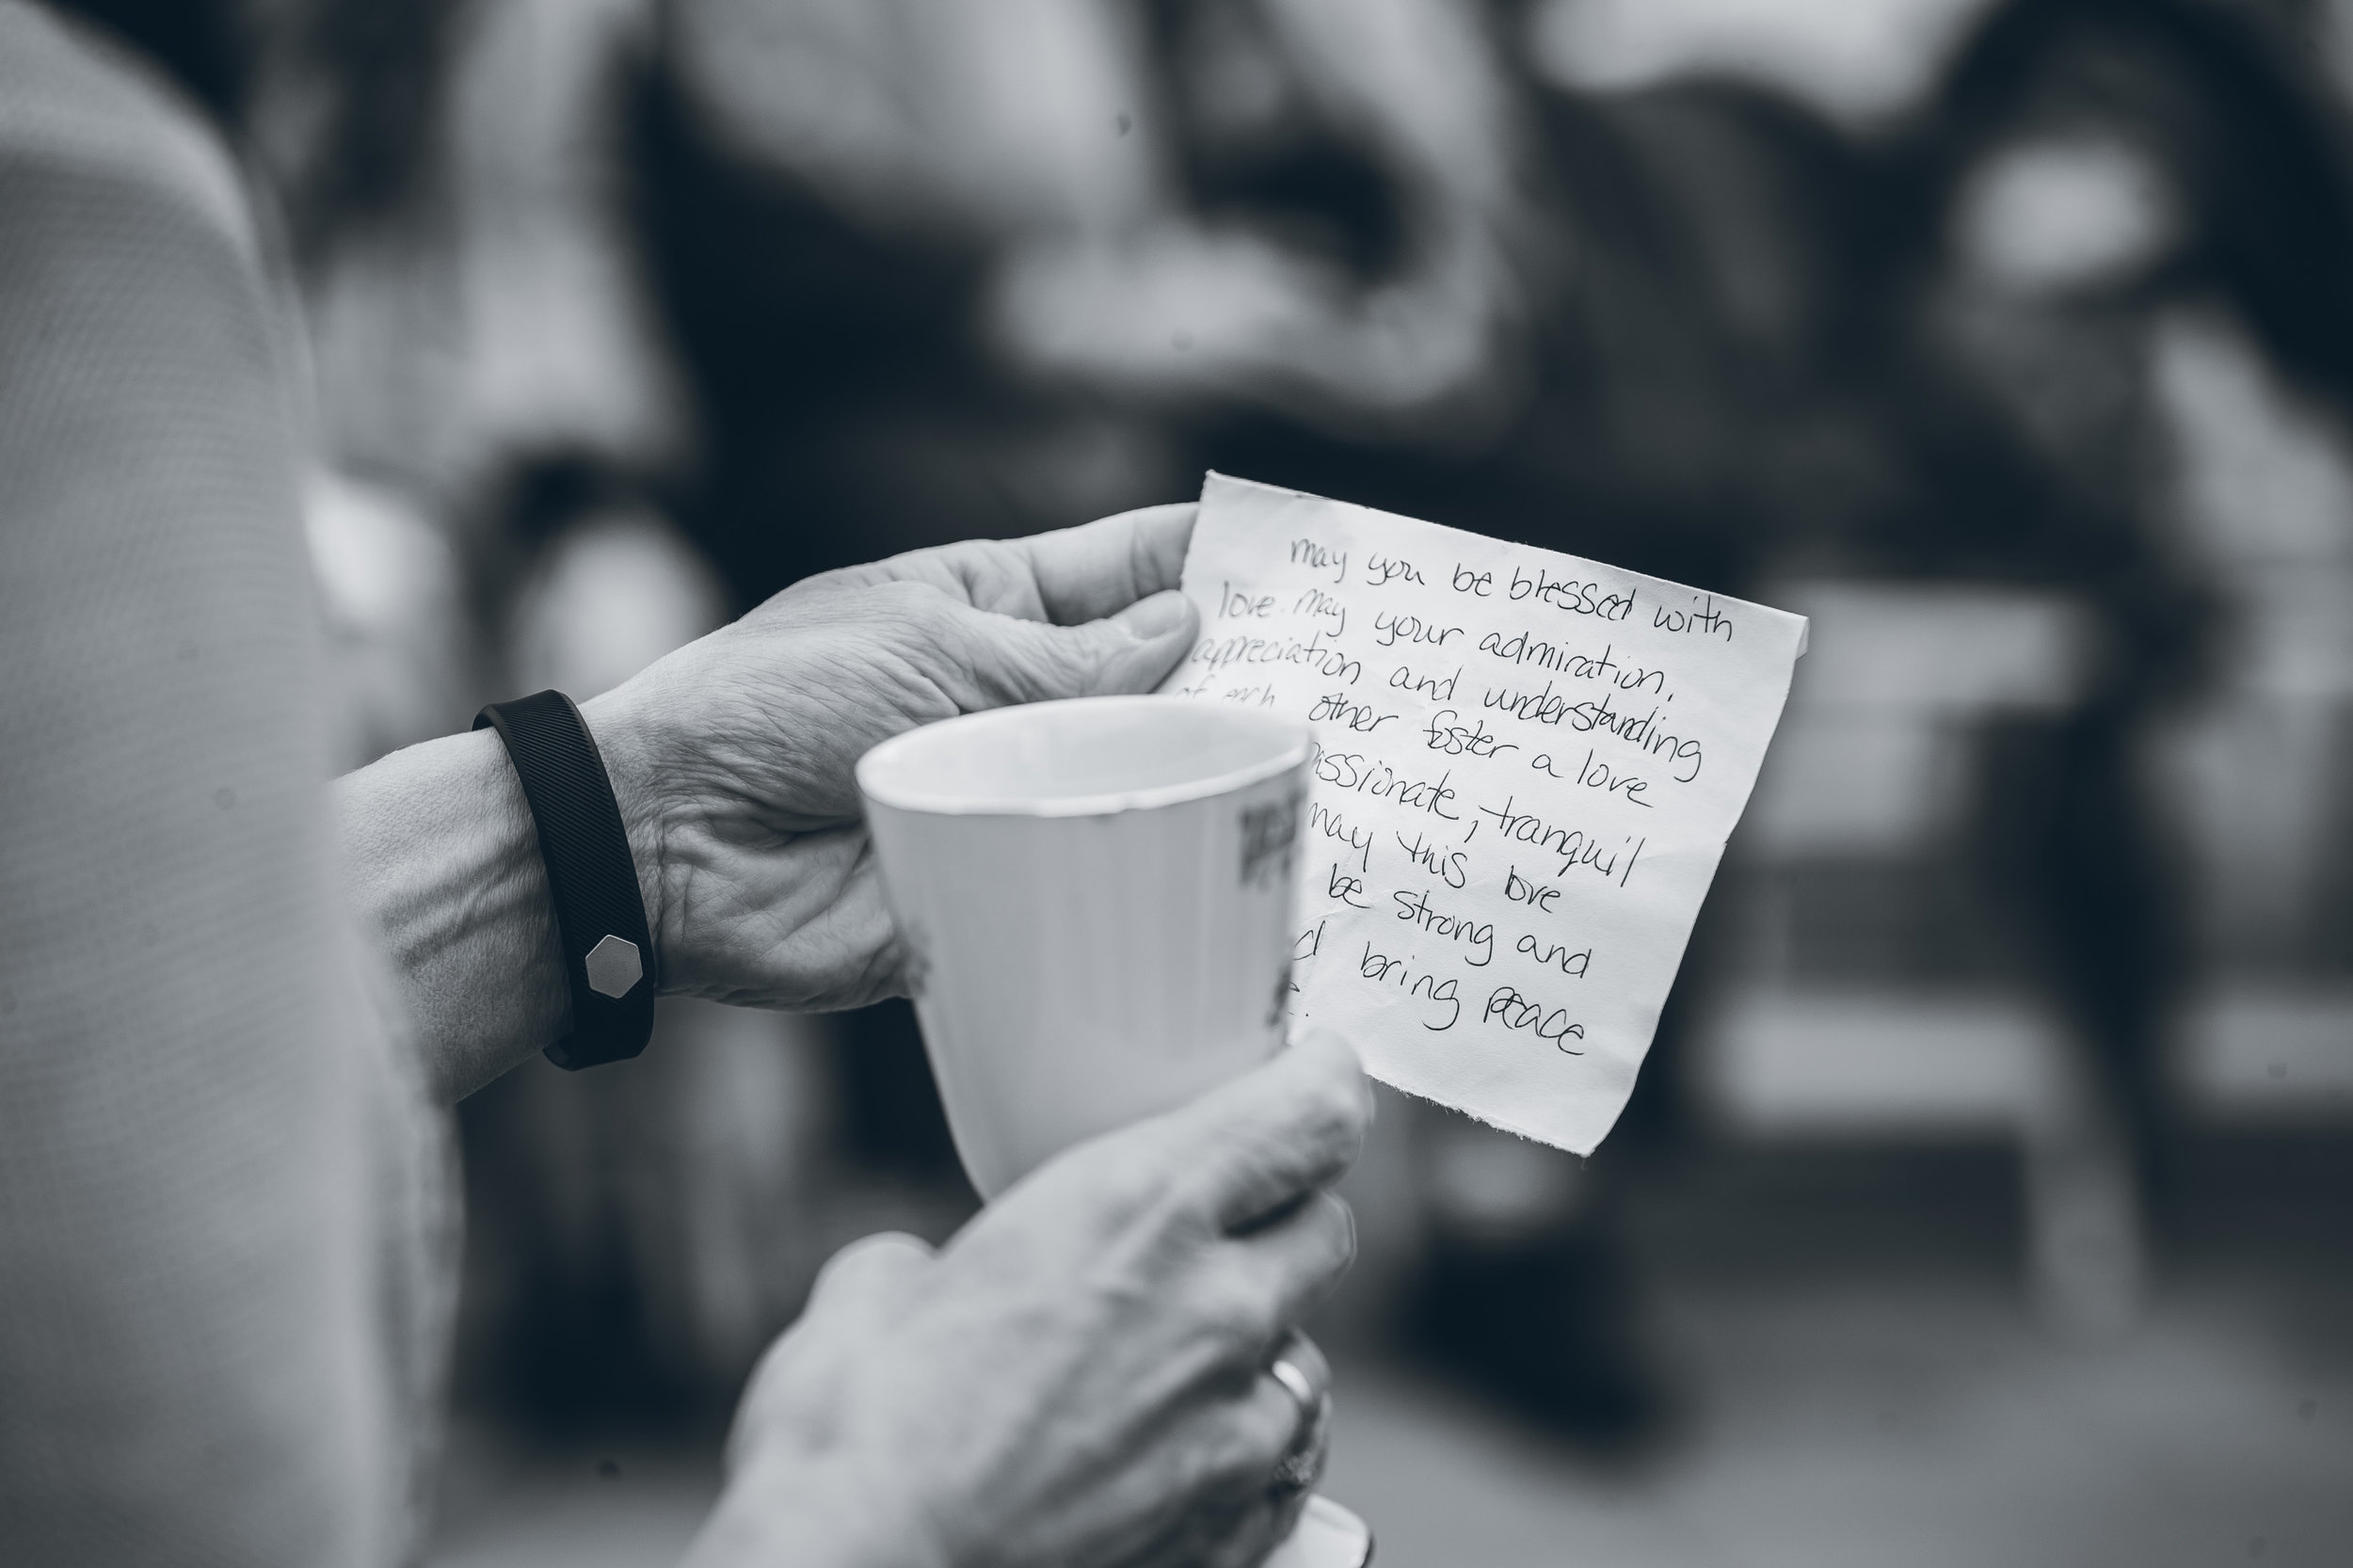 may you be blessed with
love. May your admiration,
appreciation and understanding
of each other foster a love
tranquil
may this love
be strong and
bring peace